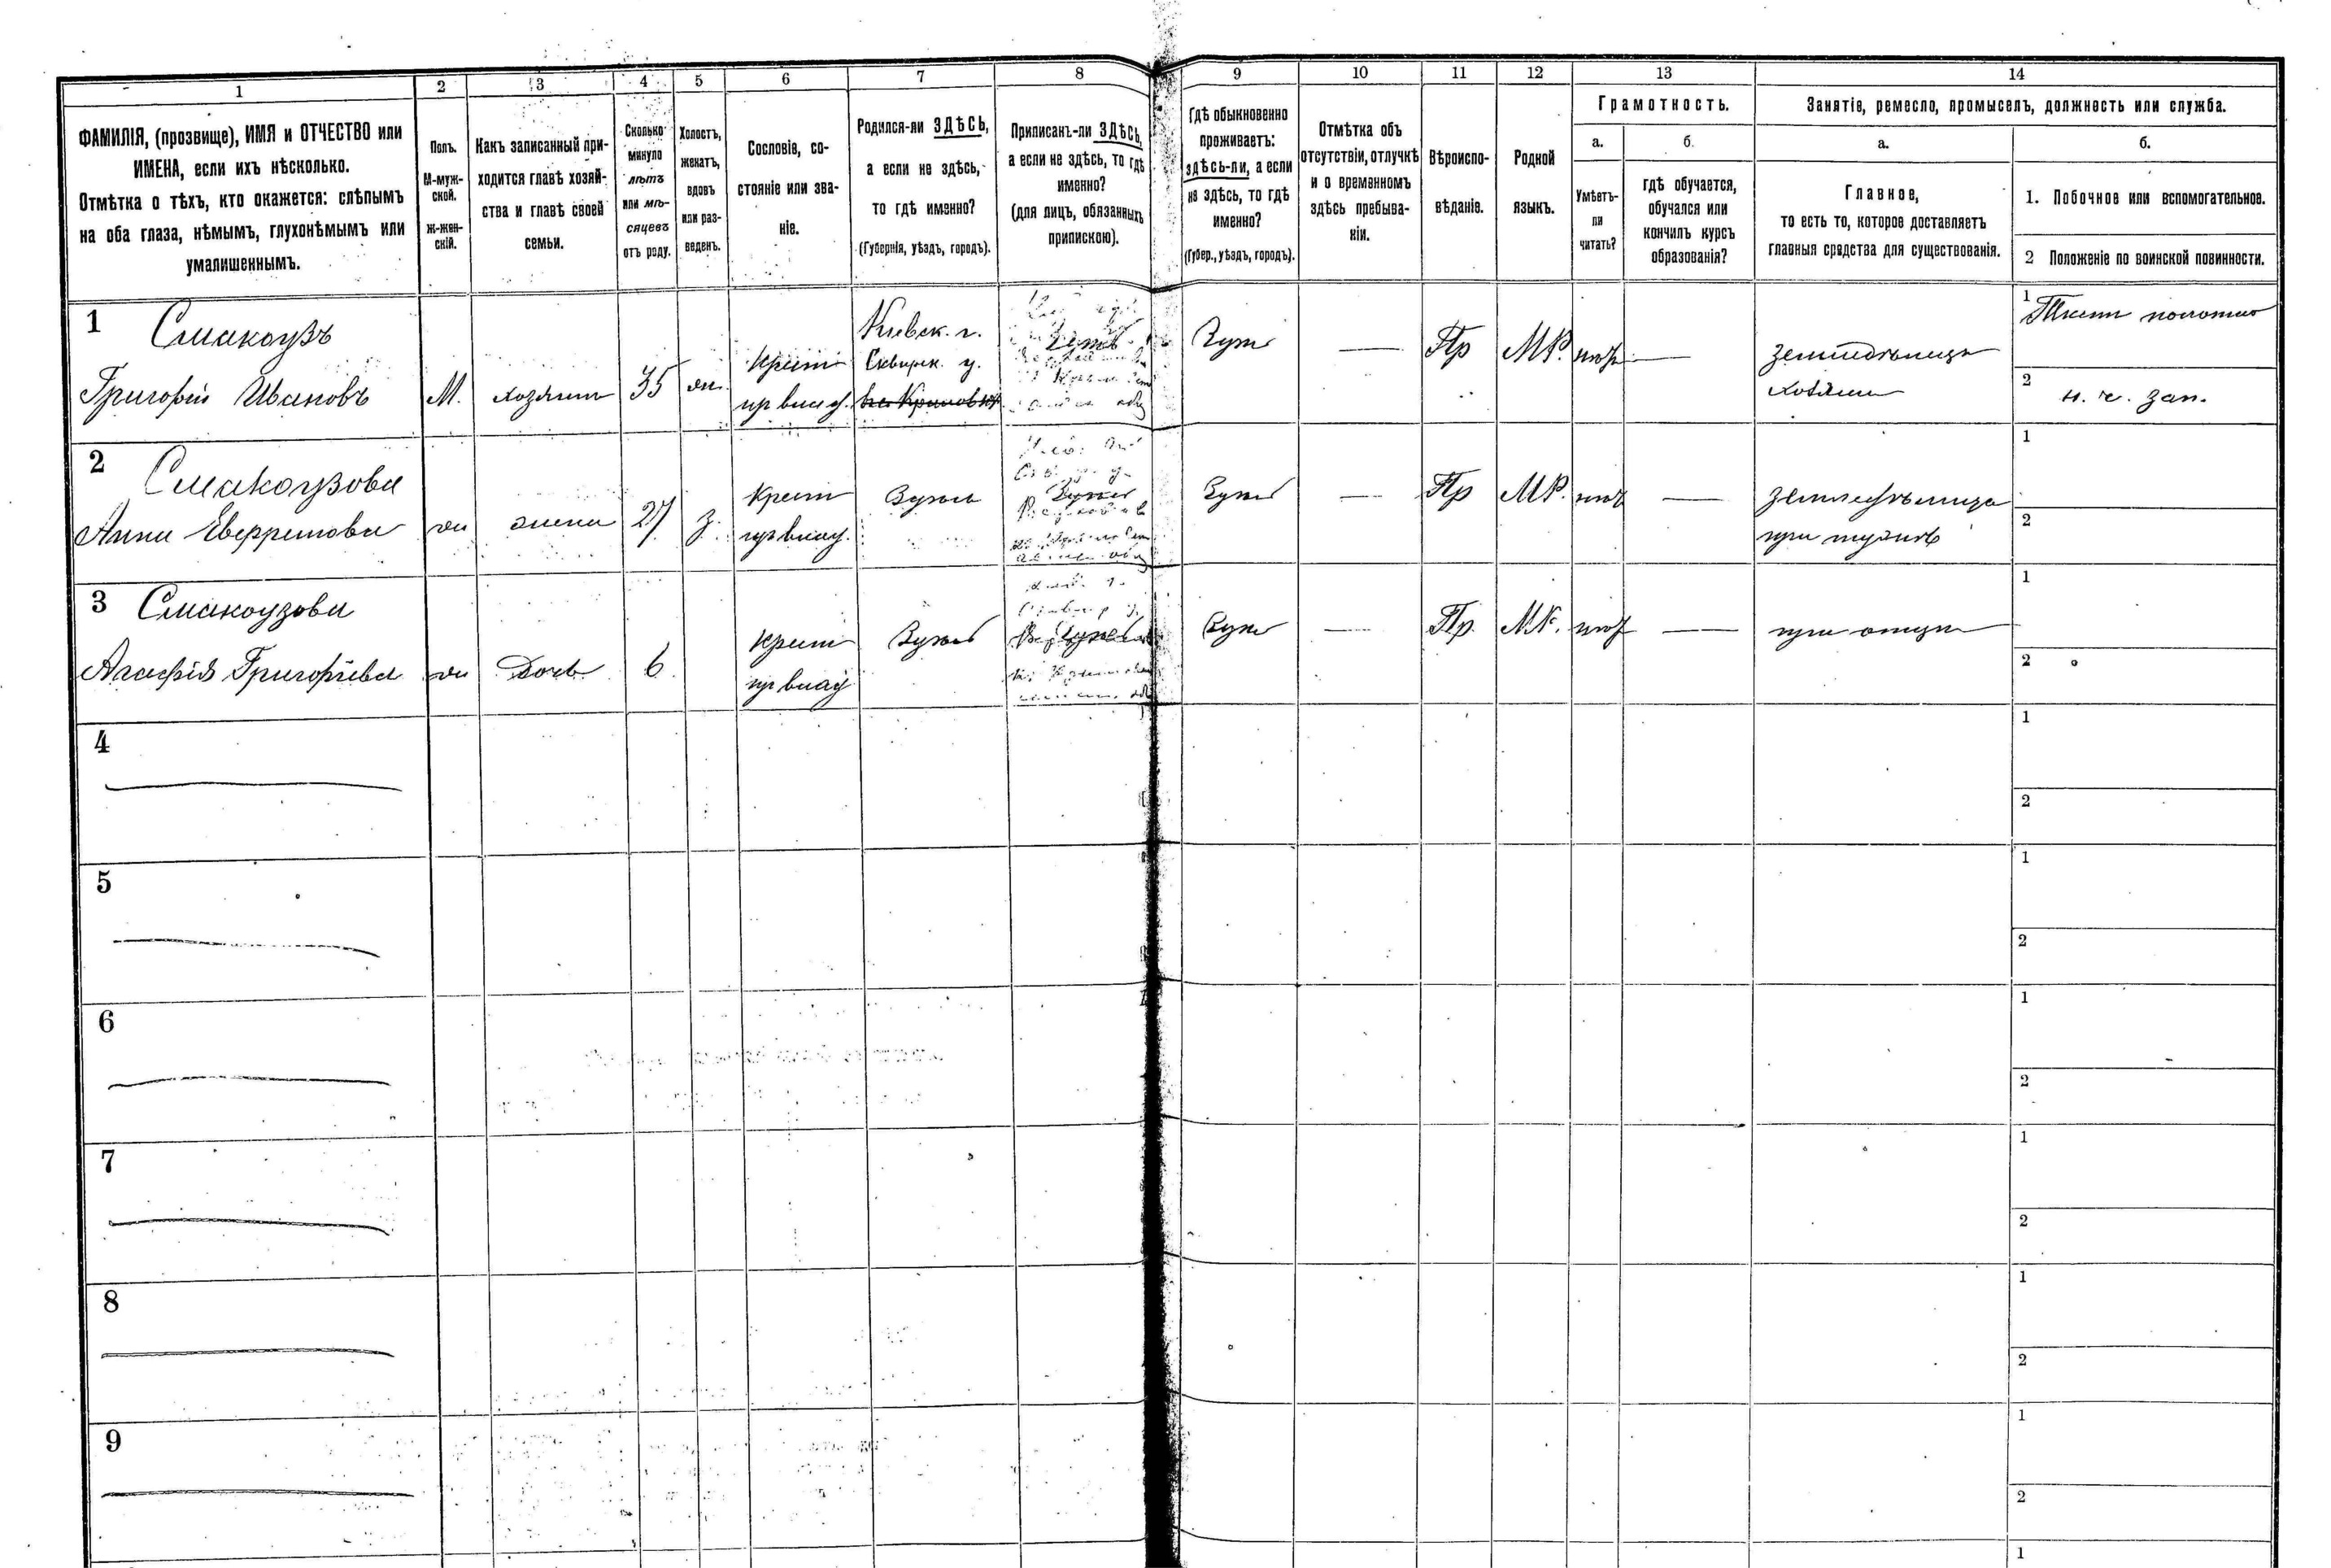 1 2 3 4 5 6 7 8 9 10 11 12 13 14
ФАМИЛІЯ, (прозвище), ИМЯ и ОТЧЕСТВО или
ИМЕНА, если ихъ нѣсколько.
Отмѣтка о тѣхъ, кто окажется: слѣпымъ
на оба глаза, нѣмымъ, глухонѣмымъ или
умалишеннымъ.
Полъ.
М-муж-
ской.
Ж-жен-
скій.
Какъ записанный при-
ходится главѣ хозяй-
ства и главѣ своей
семьи.
Сколько
минуло
лѣтъ
или мѣ-
сяцевъ
отъ роду.
Холостъ,
женатъ,
вдовъ
или раз-
веденъ.
Сословіе, со-
стояніе или зва-
ніе.
Родился-ли ЗДѢСЬ,
а если не здѣсь,
то гдѣ именно?
(Губернія, уѣздъ, городъ).
Приписанъ-ли ЗДѢСЬ,
а если не здѣсь, то гдѣ
именно?
(для лицъ, обязанныхъ
припискою).
Гдѣ обыкновенно
проживаетъ:
здѣсь-ли, а если
не здѣсь, то гдѣ
именно?
(Губер., уѣздъ, городъ).
Отмѣтка объ
отсутствіи, отлучкѣ
и о временномъ
здѣсь пребыва-
ніи.
Вѣроиспо-
вѣданіе.
Родной
языкъ.
Грамотность.
а.
Умѣетъ-
ли
читать?
б.
гдѣ обучается,
обучался или
кончилъ курсъ
образованія?
Занятіе, ремесло, промыселъ, должность или служба.
а.
Главное,
то есть то, которое доставляетъ
главныя средства для существованія.
б.
1. Побочное или вспомогательное.
2 Положеніе по воинской повинности.
1 Смакоузъ
Григорій Ивановъ
М.
хозяин
35
жн.
Крест
из влад.
Киевск. г.
Сквирск. у.
Здѣсь
Пр
МР.
нѣт
хозяин
1
2 н. ч. зап.
2 Смакоузова
Анна
жн
жена
27
з.
Крест
из влад.
Здѣсь
Здѣсь
Пр
МР.
нѣт
при мужѣ
1
2
3 Смакоузова
Агафія Григорьева
жн
Дочь
6
Крест
из влад
Здѣсь
Здѣсь
Пр.
МР.
нѣт
при отцѣ
1
2
4
1
2
5
1
2
6
1
2
7
1
2
8
1
2
9
1
2
1